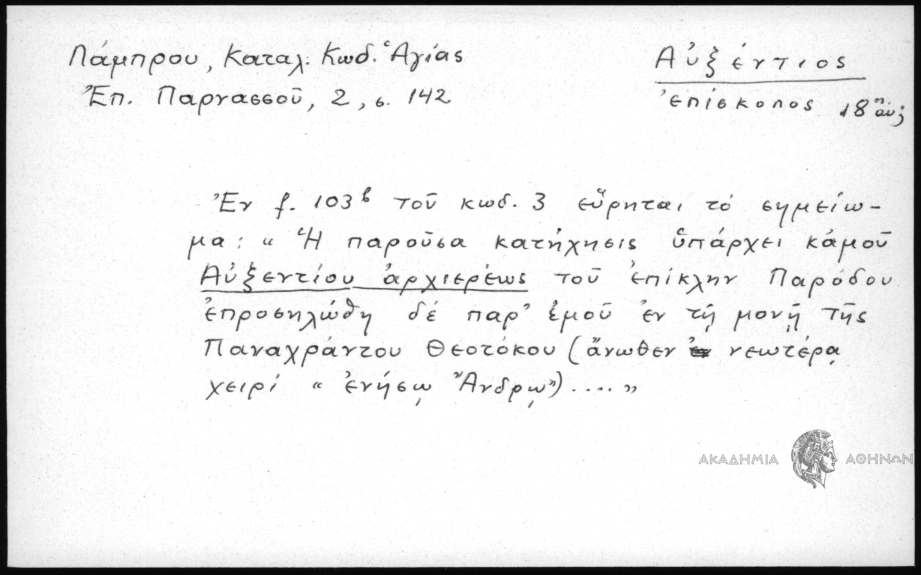 Λάμπρου, Καταλ. Κωδ. Ἁγίας
Ἐπ. Παρνασσοῦ, 2, σ. 142
Αὐξέντιος
ἐπίσκοπος 18ης αὐξ
Ἐν f. 103β τοῦ κωδ. 3 εὕρηται τό σημείω-
μα: « Ἡ παροῦσα κατήχησις ὑπάρχει κἀμοῦ
Αὐξεντίου ἀρχιερέως τοῦ ἐπίκλην Παρόδου
ἐπροσηλώθη δέ παρ' ἐμοῦ ἐν τῇ μονῇ τῆς
Παναχράντου Θεοτόκου (ἄνωθεν νεωτέρᾳ
χειρί « ἐνήσῳ Ἄνδρῳ») .... »
ΑΚΑΔΗΜΙΑ ΑΘΗΝΩΝ